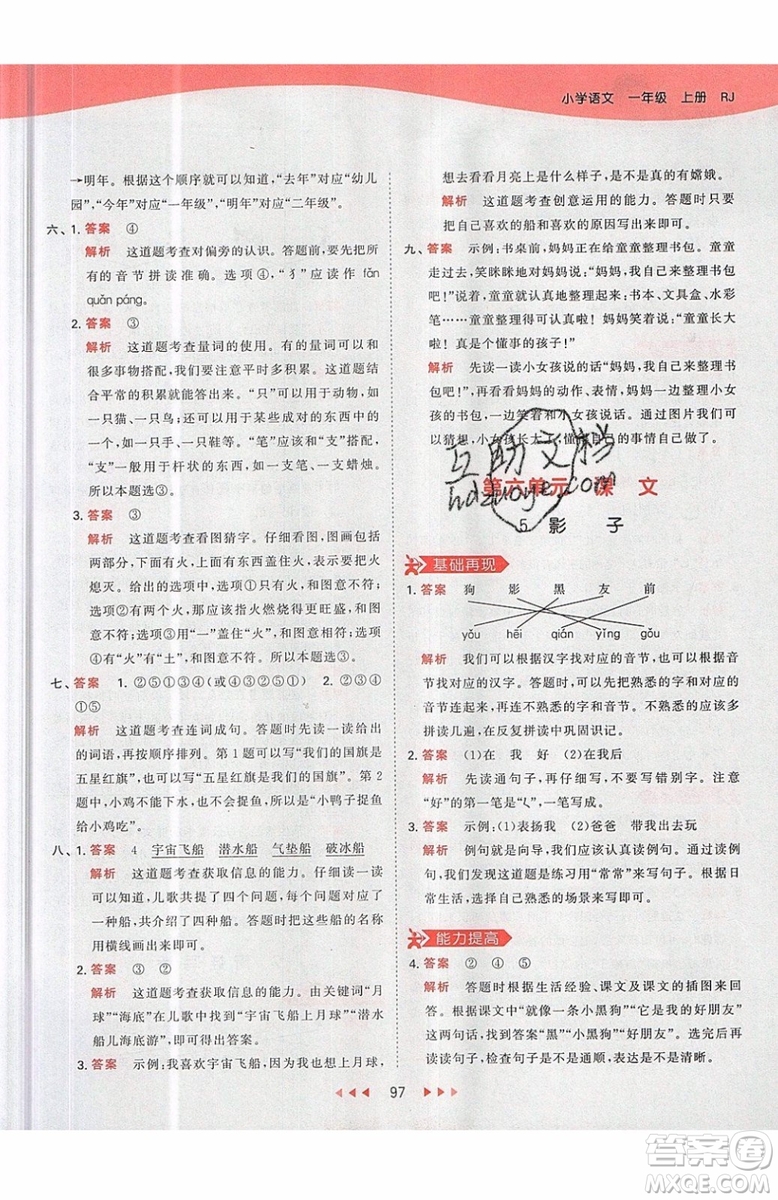 小学语文 一年级 上册 RJ
→明年。根据这个顺序就可以知道，“去年”对应“幼儿
园”，“今年”对应“一年级”，“明年”对应“二年级”。
六、1. 答案 ④
解析 这道题考查对偏旁的认识。答题时要把所
有的音节拼读准确。选项④，“犭”应读作 fǎn
quǎn páng。
2. 答案 ③
解析 这道题考查量词的使用。有些量词可以和
很多事物搭配，我们要注意平时多积累。答题时
结合平常的积累就能答出来。“只”可以用于动物，如
一只猫、一只鸟，也可以用于某些成对的东西中的
一个，如一只耳朵、一只手。“笔”应和“支”搭配，
“支”一般用于杆状的东西，如一支笔、一支蜡烛。所
以本题选③。
3. 答案 ③
解析 这道题考查看图猜汉字。仔细看图，图画包括
两部分，下面是火，上面有东西盖住火，表示要把火
熄灭。给出的选项中，①没有“火”，和图意不符；
②应该有两个“火”，和图意不符；
③由“一”和“火”组成，“一”盖住“火”，和图意相符；
④有“火”有“土”，和图意不符。所以本题选③。
七、答案 1. ②⑤①③④(或④⑤①③②) 2. ②③④
①⑤
解析 这道题考查连词成句。答题时先读一读给出
的词语，再按顺序排列。第 1 题可以写“我们的国旗是
五星红旗”，也可以写“五星红旗是我们的国旗”。第 2
题中，小鸡不能下水，也不能捉鱼，所以是“小鸭子捉鱼
给小鸡吃”。
八、1. 答案 4 宇宙飞船 潜水船 气垫船 破冰船
解析 这道题考查获取信息的能力。仔细读一读
可以发现，儿歌共有四个问题，每个问题对应了
一种船，共有四种船。答题时要把所有船的名称
用横线画出来即可。
2. 答案 ③ ②
解析 这道题考查获取信息的能力。由关键词“月
球”“海底”在儿歌中找到“宇宙飞船上月球”“潜水
船儿海底游”，即可得出答案。
3. 答案 示例：我喜欢宇宙飞船，因为我想上月球，
想去看看月亮上是什么样子，是不是真的有嫦娥。
解析 这道题考查创意运用的能力。答题时只要
把自己喜欢的船和喜欢的原因写出来即可。
九、答案 示例：书桌前，妈妈正在给童童整理书包。童童
走过去，笑眯眯地对妈妈说：“妈妈，我自己来整理书包
吧！”于是，童童就认真地整理起来：书本、文具盒、水彩
笔……童童整理得可认真了！妈妈高兴地说：“童童长大
了啦，真是个懂事的孩子！”
解析 先读一读小女孩说的话“妈妈，我自己来整理书
包吧！”，再看看妈妈的动作、表情，妈妈可能想整理小女
孩的书包，一边笑着和小女孩说话。通过图片我们可
以猜想，小女孩长大了，想自己的事情自己做了。
互助文档
hdzuoye.com
第六单元 课 文
5 影 子
基础再现
1. 答案 狗 影 黑 友 前
yǒu hēi qián yǐng gǒu
解析 我们可以根据汉字找对应的音节，也可以根据
音节找对应的汉字。答题时，可以先把熟悉的字和
音节连起来，再连不熟悉的字和音节。连完后再
拼读几遍，在反复拼读中巩固识记。
2. 答案 (1)在 我 好 (2)在我后
解析 先读通句子，再仔细写，不要写错别字。注意
“好”的第一笔是“㇛”，一笔写成。
3. 答案 示例：(1)表扬我 (2)爸爸 带我出去玩
解析 例句就是向导，所以我们可以认真读例句。
例句告诉我们，这道题是练习用“常常”来写句子。根据
日常生活，选择自己熟悉的场景来写句子即可。
能力提高
4. 答案 ② ④ ⑤
解析 答题时根据生活经验、课文及课文的插图来选
出正确的答案。根据课文中“就像一条小黑狗”“它是我的好朋
友”这两句话，找到答案“黑黑的”“小黑狗”“好朋友”。选完后再
读一读句子，检查句子是不是通顺，答案是不是正确。
97
答案圈
MXQE.COM